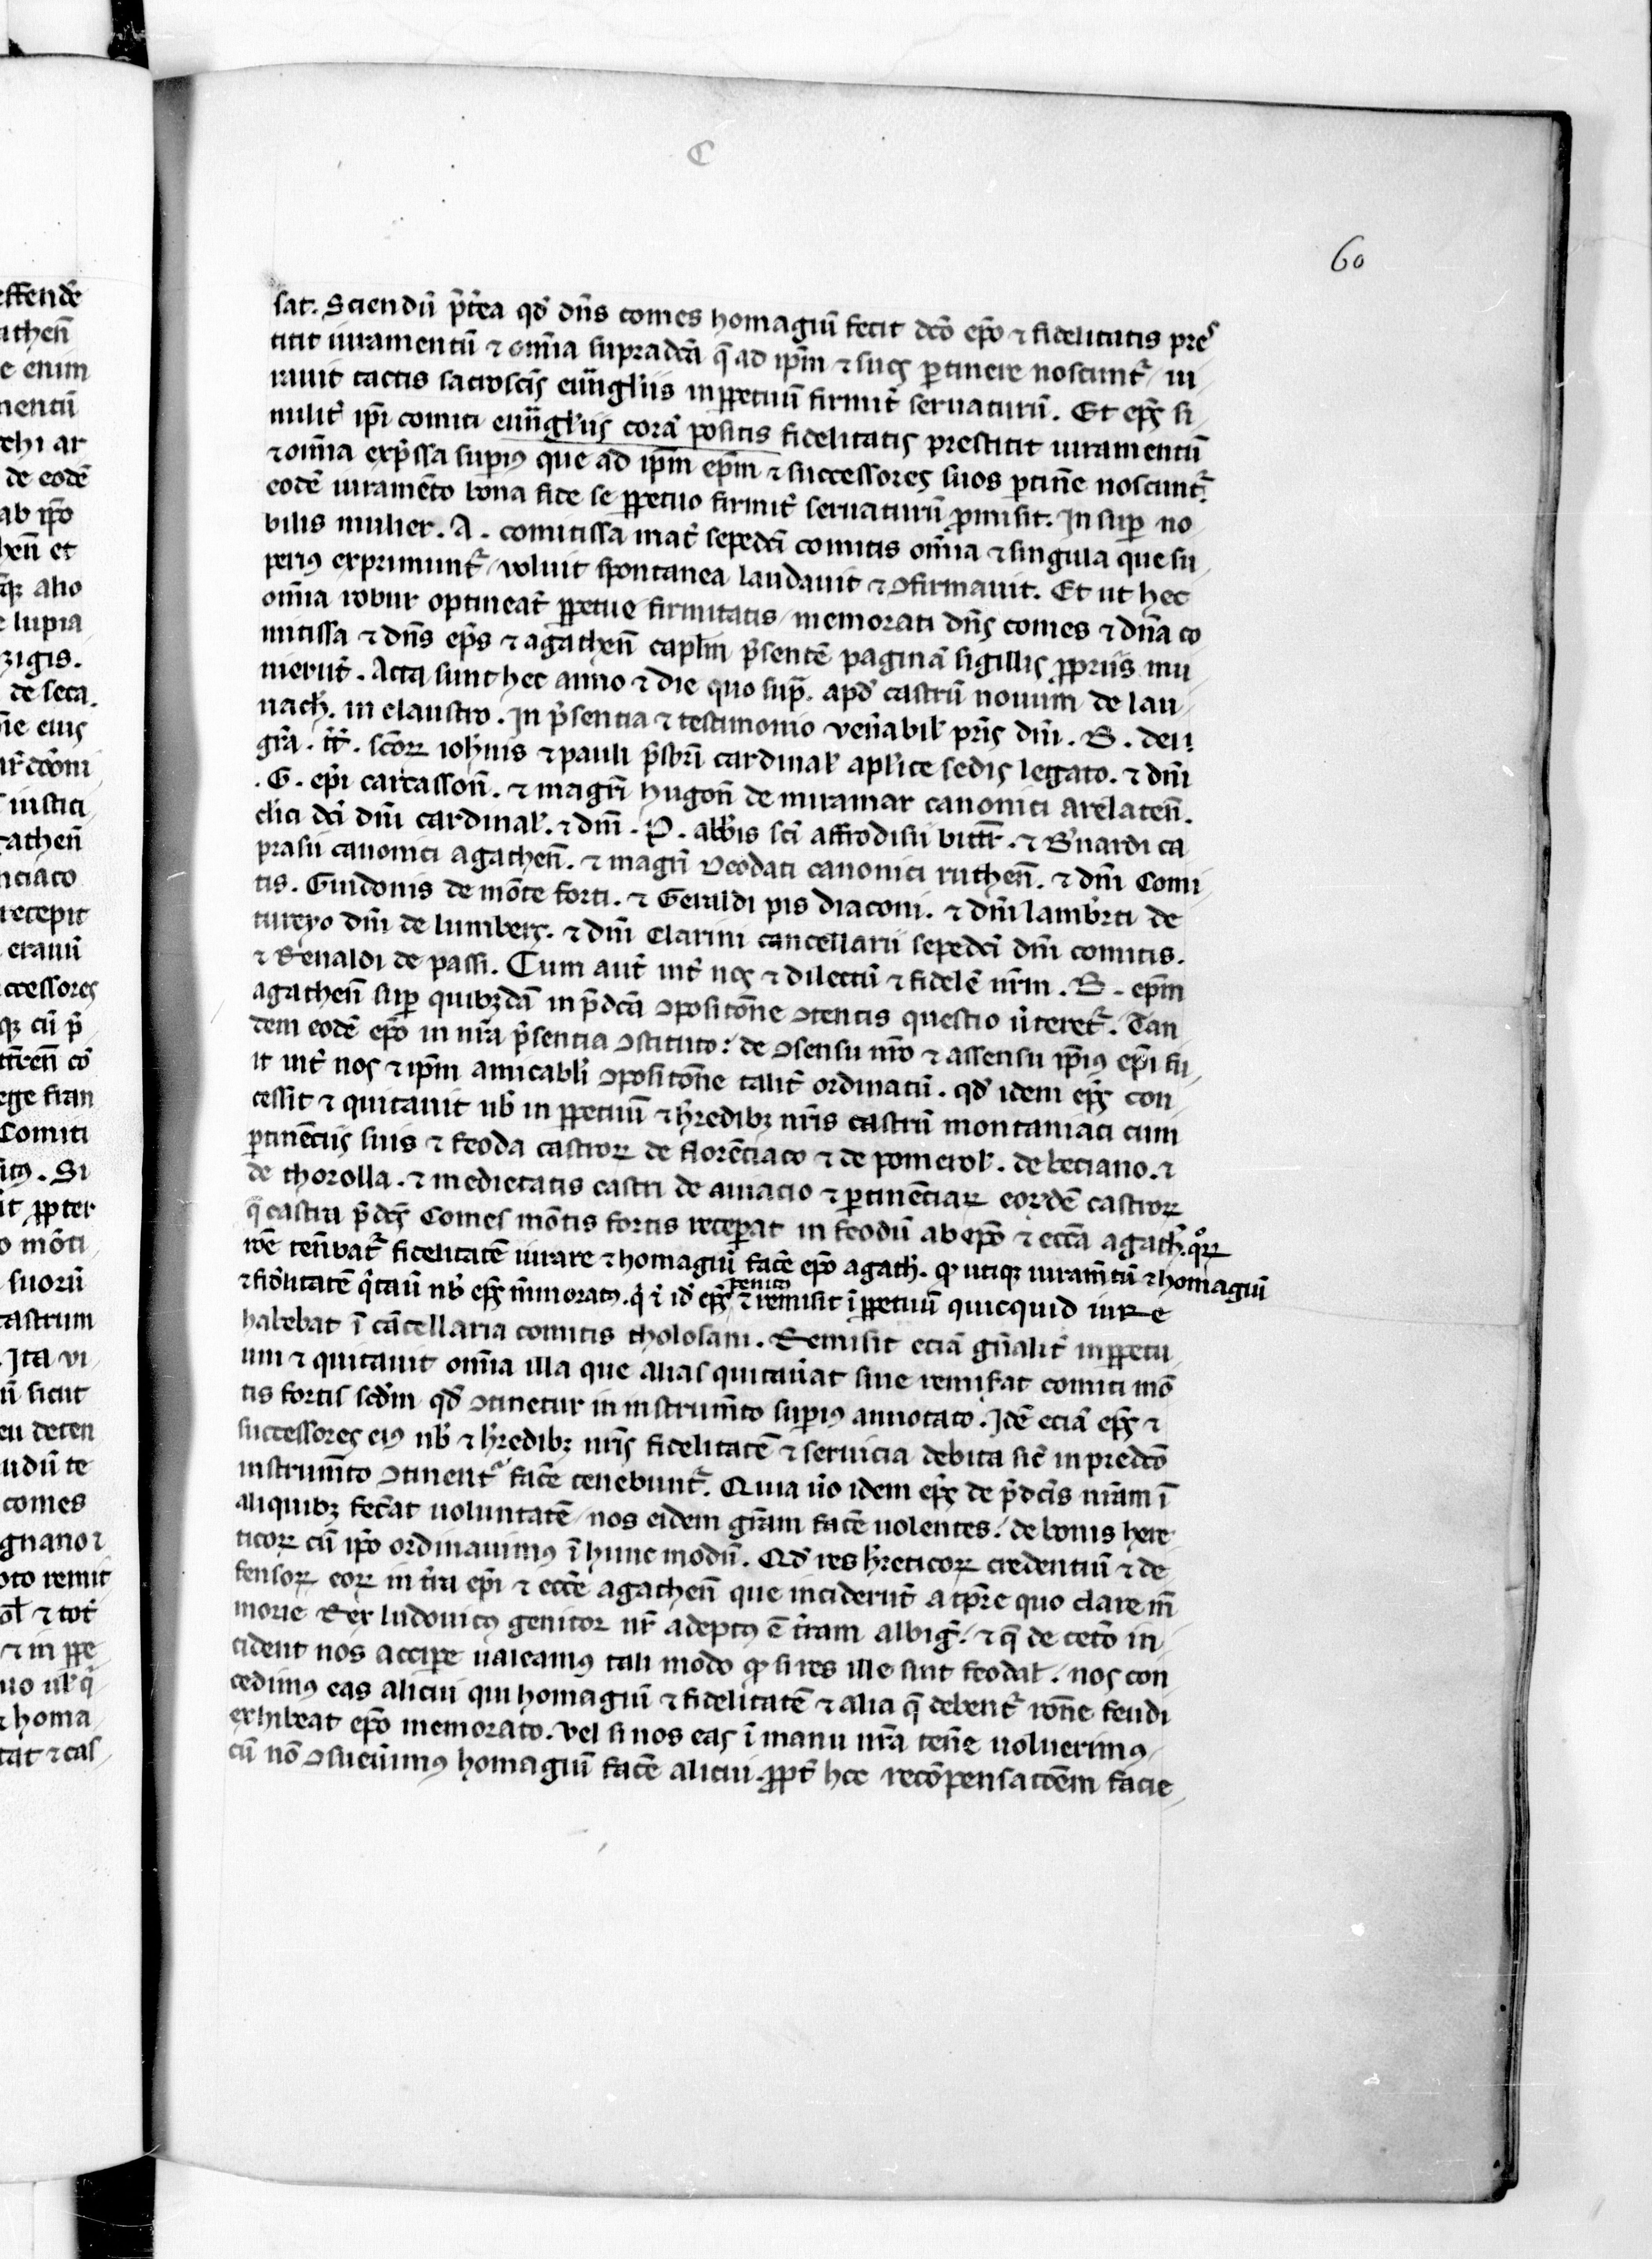 60
sat. Sciendū p̄t̄ea qd̄ dn̄s comes homagiū fecit dc̄o ep̄o ⁊ fidelitatis pres
titit iuramentū ⁊ om̄ia supradc̄a q̄ ad ip̄m ⁊ suos ꝑtinere noscunt᷑ iu
rauit tactis sacrosc̄is euu̅gl'iis inꝑpetuū firmit̄ seruaturū. Et ep̄s si
milit̄ ip̄i comiti euu̅gl'iis corā positis fidelitatis prestitit iuramentū
⁊ om̄ia exp̄ssa suꝑius que ad ip̄m ep̄m ⁊ successores suos ꝑtin̄e noscunt᷑.
eodē iuramēto bona fide se ꝑpetuo firmit̄ seruaturū ꝓmisit. In suꝑ no
bilis mulier. A. comitissa mat̄ sepedc̄i comitis om̄ia ⁊ singula que su
perius exprimunt᷑ uoluit spontanea laudauit ⁊ ↄfirmauit. Et ut hec
om̄ia robur optineāt ꝑpetue firmitatis memorati dn̄s comes ⁊ dn̄a co
mitissa ⁊ dn̄s ep̄s ⁊ agathen̄ caplm̄ p̄sentē paginā sigillis ꝓpriis mu
nierūt. Acta sunt hec anno ⁊ die quo sup̄. apd̄ castrū nouum de lau
nach. in claustro. In p̄sentia ⁊ testimonio ven̄abil' pr̄is dn̄i. B. dei
gr̄a. tt̄. sc̄orꝝ ioh̄nis ⁊ pauli p̄sbri cardinal' apl'ice sedis legato. ⁊ dn̄i
.G. ep̄i carcasson̄. ⁊ magr̄i hugon̄ de miramar canonici arelaten̄.
cl'ici dc̄i dn̄i cardinal'. ⁊ dn̄i. P. abb̄is sc̄i affrodisii bitt̄r. ⁊ B'nardi ca
prasii canonici agathen̄. ⁊ magr̄i Deodati canonici ruthen̄. ⁊ dn̄i Comi
tis. Guidonis de mōte forti. ⁊ Geraldi pis diaconi. ⁊ dn̄i lamb'rti de
tureyo dn̄i de lumbers. ⁊ dn̄i Clarini cancellarii sepedc̄i dn̄i comitis.
⁊ Renaldi de passi. Cum aut̄ int̄ nos ⁊ dilectū ⁊ fidelē nr̄m. B. ep̄m
agathen̄ suꝑ quibꝫdā in p̄dc̄a ↄpositōne ↄtentis questio u̔teret᷑. Tan
dem eodē ep̄o in nr̄a p̄sentia ↄstituto: de ↄsensu nr̄o ⁊ assensu ip̄ius ep̄i fu
it int̄ nos ⁊ ip̄m amicabl'i ↄpositōne talit̄ ordinatū. qd̄ idem ep̄s con
cessit ⁊ quitauit nb̄ in ꝑpetuū ⁊ h'redibꝫ nr̄is castrū montaniaci cum
ꝑtinēciis suis ⁊ feoda castrorꝝ de florēciaco ⁊ de pomerol'. de beciano. ⁊
de thorolla. ⁊ medietatis castri de auiacio ⁊ ꝑtinēciarꝝ eordē castrorꝝ
q̄ castra p̄dc̄s Comes mōtis fortis receꝑat in feodū ab ep̄o ⁊ ecc̄a agath̄. q̊rꝝ
rōe ten̄bat᷑ fidelitatē iurare ⁊ homagiū fac̄e ep̄o agath̄. qͦ utiqꝫ iuram̄tū ⁊ homagiū
⁊ fid'litatē q̇tauit nb̄ ep̄s m̄moratus. q̇ ⁊ id' ep̄s penit̾ remisit ī ꝑpetuū quicquid iure
habebat ī cācellaria comitis tholosani. Remisit eciā gn̄alit̄ inꝑpetu
um ⁊ quitauit om̄ia illa que alias quitau̔at siue remiś̄at comiti mō
tis fortis scdm̄ qd̄ ↄtinetur in instrum̄to suꝑius annotato. Idē eciā ep̄s ⁊
successores eius nb̄ ⁊ h'redibꝫ nr̄is fidelitatē ⁊ seruicia debita sic̄ in predc̄o
instrum̄to ↄtinent᷑ fac̄e tenebunt᷑. Quia u̔o idem ep̄s de p̄dc̄is nr̄am ī
aliquibꝫ fec̄at uoluntatē nos eidem gr̄am fac̄e uolentes. de bonis here
ticorꝝ cū ip̄o ordinauimus ī hunc modū. Qd̄ res h'reticorꝝ credentiū ⁊ de
fensorꝝ eorꝝ in t̄ra ep̄i ⁊ ecc̄e agathen̄ que incider̄ut a tp̄re quo clare m̄
morie Rex ludouicus genitor nr̄ adeptus ē t̄ram albiḡ. ⁊ q̄ de cet̄o in
cident nos accip̄e ualeamus tali modo qͦ si res ille sint feodal'. nos con
cedimus eas alicui qui homagiū ⁊ fidelitatē ⁊ alia q̄ debent᷑ rōne feudi
exhibeat ep̄o memorato. Vel si nos eas ī manu nr̄a ten̄e uoluerimus
cū nō ↄsueuimus homagiū fac̄e alicui. ꝓpt̄ hoc recōpensatōem facie